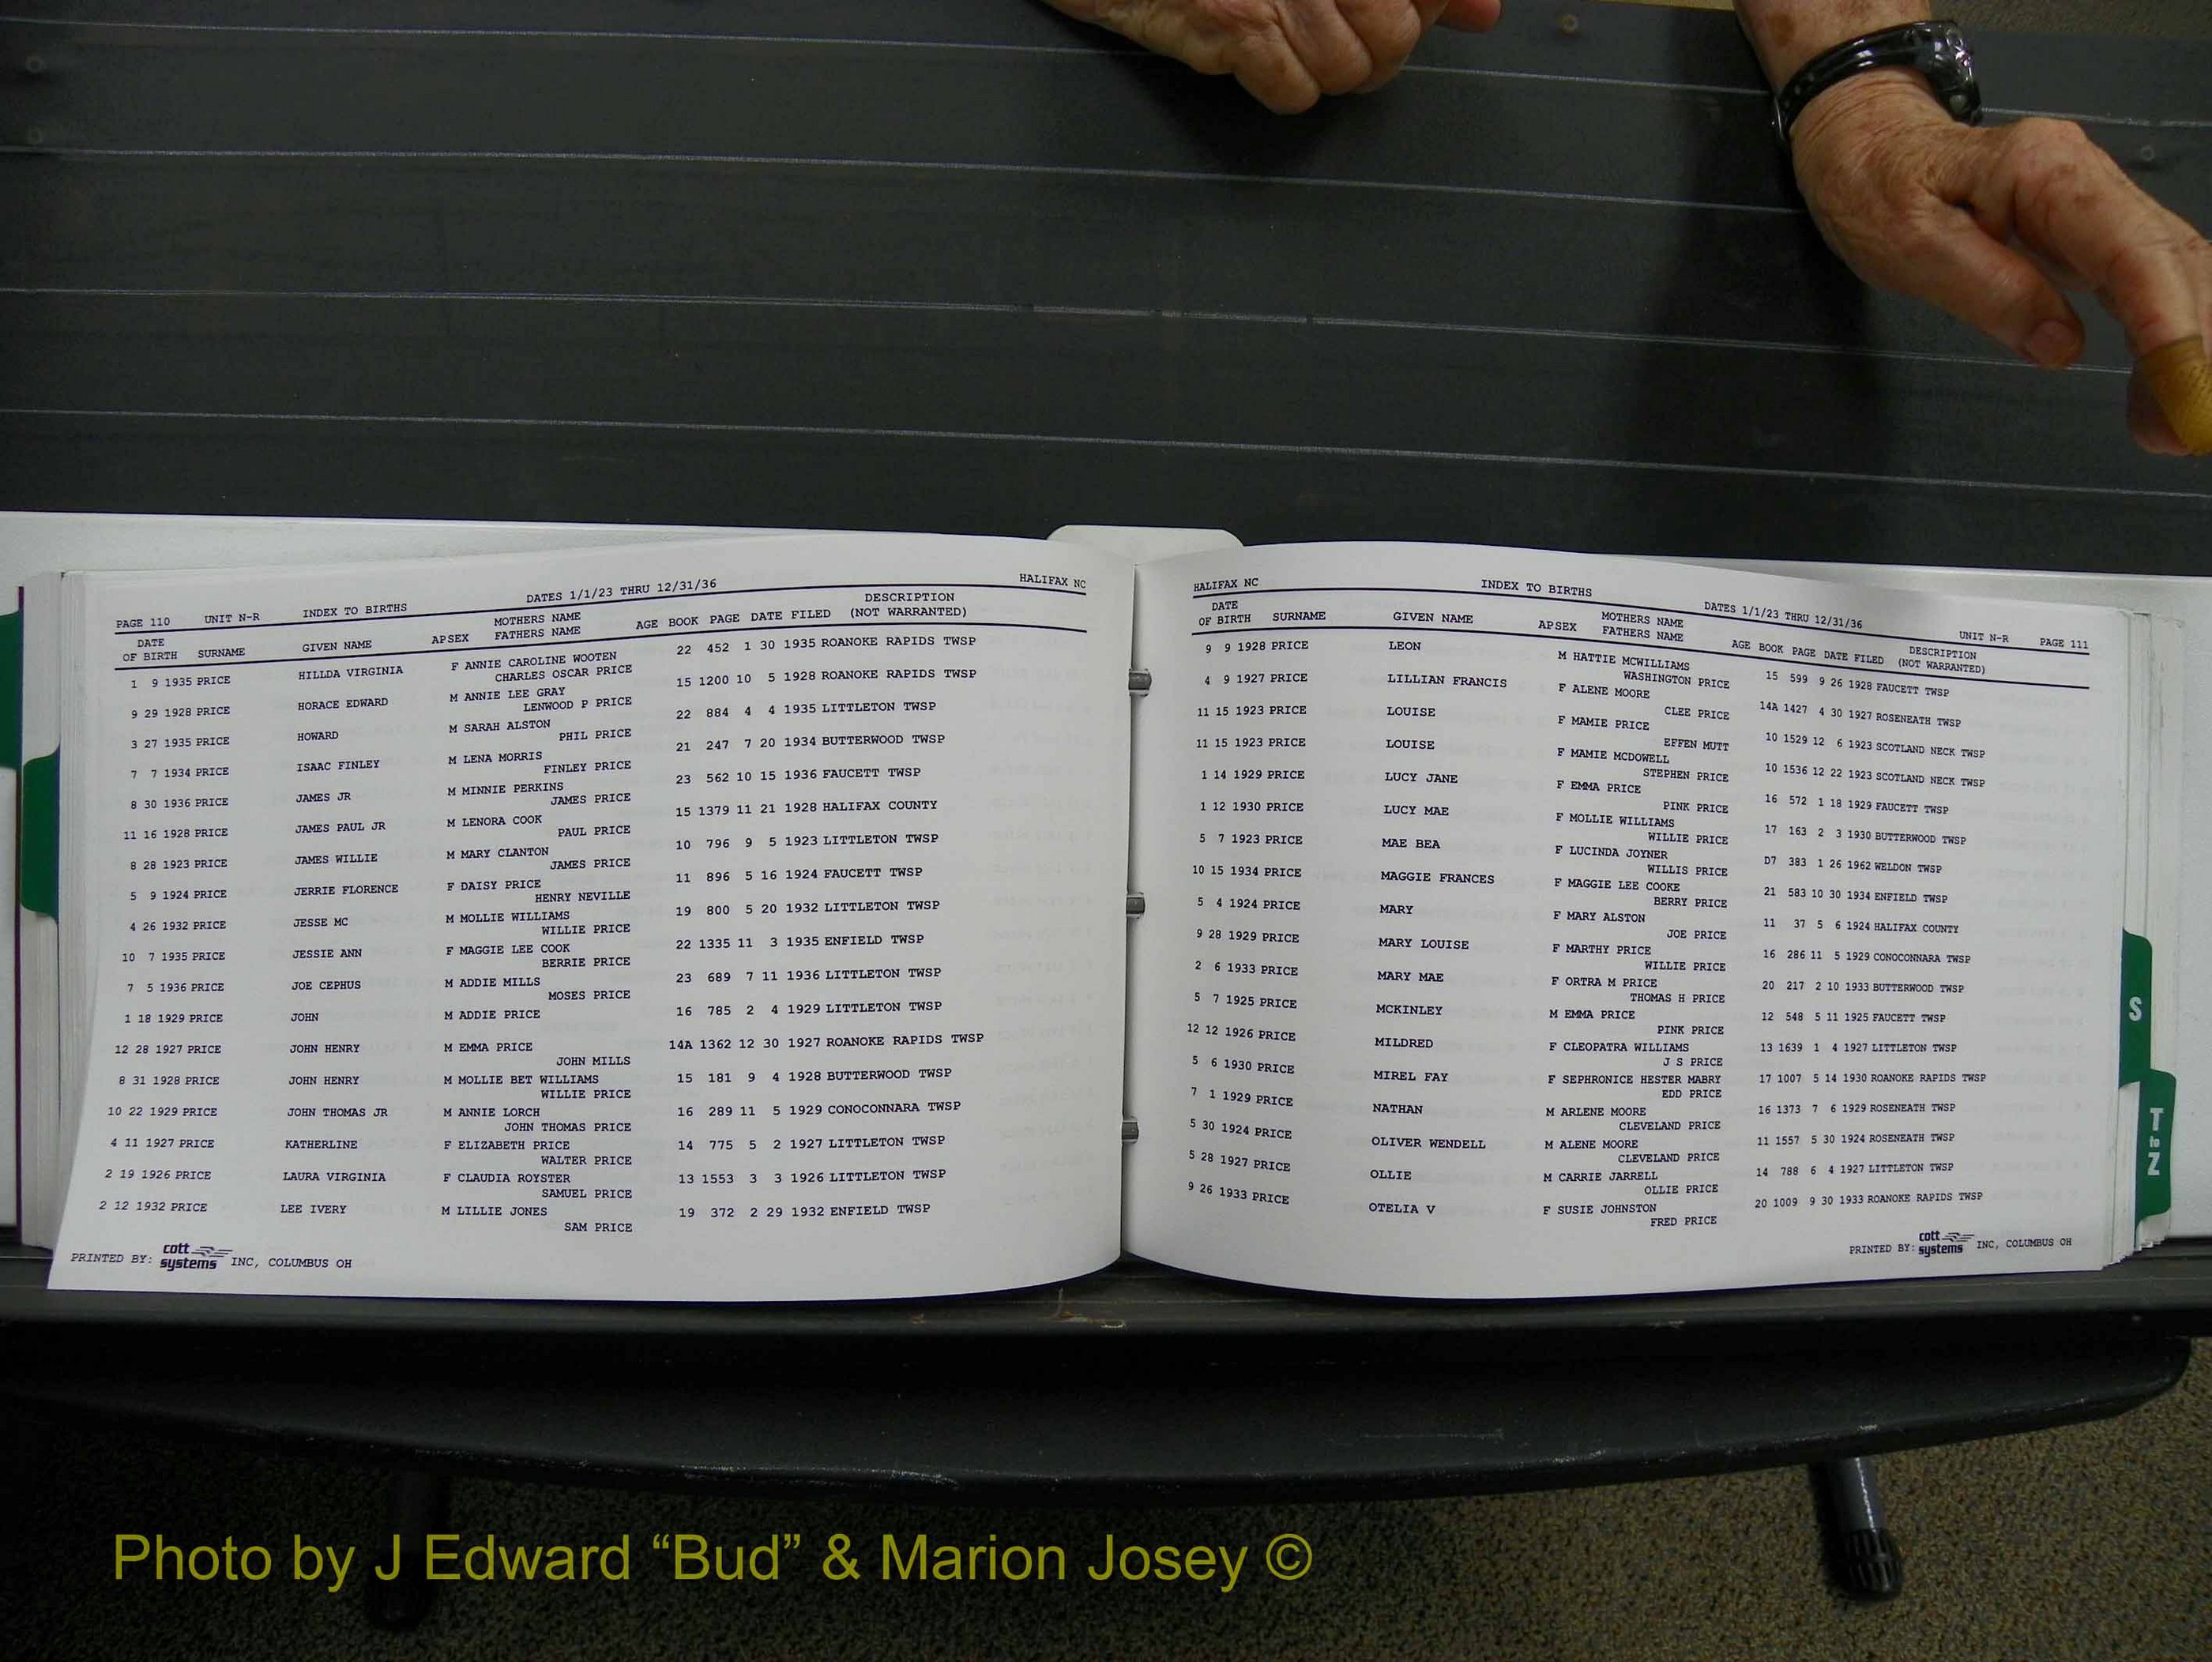 PAGE 110 UNIT N-R INDEX TO BIRTHS DATES 1/1/23 THRU 12/31/36 HALIFAX NC
DATE MOTHERS NAME DESCRIPTION
OF BIRTH SURNAME GIVEN NAME APSEX FATHERS NAME AGE BOOK PAGE DATE FILED (NOT WARRANTED)
1 9 1935 PRICE HILLDA VIRGINIA F ANNIE CAROLINE WOOTEN 22 452 1 30 1935 ROANOKE RAPIDS TWSP
CHARLES OSCAR PRICE
9 29 1928 PRICE HORACE EDWARD M ANNIE LEE GRAY 15 1200 10 5 1928 ROANOKE RAPIDS TWSP
LENWOOD P PRICE
3 27 1935 PRICE HOWARD M SARAH ALSTON 22 884 4 4 1935 LITTLETON TWSP
PHIL PRICE
7 7 1934 PRICE ISAAC FINLEY M LENA MORRIS 21 247 7 20 1934 BUTTERWOOD TWSP
FINLEY PRICE
8 30 1936 PRICE JAMES JR M MINNIE PERKINS 23 562 10 15 1936 FAUCETT TWSP
JAMES PRICE
11 16 1928 PRICE JAMES PAUL JR M LENORA COOK 15 1379 11 21 1928 HALIFAX COUNTY
PAUL PRICE
8 28 1923 PRICE JAMES WILLIE M MARY CLANTON 10 796 9 5 1923 LITTLETON TWSP
JAMES PRICE
5 9 1924 PRICE JERRIE FLORENCE F DAISY PRICE 11 896 5 16 1924 FAUCETT TWSP
HENRY NEVILLE
4 26 1932 PRICE JESSE MC M MOLLIE WILLIAMS 19 800 5 20 1932 LITTLETON TWSP
WILLIE PRICE
10 7 1935 PRICE JESSIE ANN F MAGGIE LEE COOK 22 1335 11 3 1935 ENFIELD TWSP
BERRIE PRICE
7 5 1936 PRICE JOE CEPHUS M ADDIE MILLS 23 689 7 11 1936 LITTLETON TWSP
MOSES PRICE
1 18 1929 PRICE JOHN M ADDIE PRICE 16 785 2 4 1929 LITTLETON TWSP
12 28 1927 PRICE JOHN HENRY M EMMA PRICE 14A 1362 12 30 1927 ROANOKE RAPIDS TWSP
JOHN MILLS
8 31 1928 PRICE JOHN HENRY M MOLLIE BET WILLIAMS 15 181 9 4 1928 BUTTERWOOD TWSP
WILLIE PRICE
10 22 1929 PRICE JOHN THOMAS JR M ANNIE LORCH 16 289 11 5 1929 CONOCONNARA TWSP
JOHN THOMAS PRICE
4 11 1927 PRICE KATHERLINE F ELIZABETH PRICE 14 775 5 2 1927 LITTLETON TWSP
WALTER PRICE
2 19 1926 PRICE LAURA VIRGINIA F CLAUDIA ROYSTER 13 1553 3 3 1926 LITTLETON TWSP
SAMUEL PRICE
2 12 1932 PRICE LEE IVERY M LILLIE JONES 19 372 2 29 1932 ENFIELD TWSP
SAM PRICE
PRINTED BY: cott systems INC, COLUMBUS OH
HALIFAX NC INDEX TO BIRTHS DATES 1/1/23 THRU 12/31/36 UNIT N-R PAGE 111
DATE MOTHERS NAME DESCRIPTION
OF BIRTH SURNAME GIVEN NAME APSEX FATHERS NAME AGE BOOK PAGE DATE FILED (NOT WARRANTED)
9 9 1928 PRICE LEON M HATTIE MCWILLIAMS 15 599 9 26 1928 FAUCETT TWSP
WASHINGTON PRICE
4 9 1927 PRICE LILLIAN FRANCIS F ALENE MOORE 14A 1427 4 30 1927 ROSENEATH TWSP
CLEE PRICE
11 15 1923 PRICE LOUISE F MAMIE PRICE 10 1529 12 6 1923 SCOTLAND NECK TWSP
EFFEN MUTT
11 15 1923 PRICE LOUISE F MAMIE MCDOWELL 10 1536 12 22 1923 SCOTLAND NECK TWSP
STEPHEN PRICE
1 14 1929 PRICE LUCY JANE F EMMA PRICE 16 572 1 18 1929 FAUCETT TWSP
PINK PRICE
1 12 1930 PRICE LUCY MAE F MOLLIE WILLIAMS 17 163 2 3 1930 BUTTERWOOD TWSP
WILLIE PRICE
5 7 1923 PRICE MAE BEA F LUCINDA JOYNER D7 383 1 26 1962 WELDON TWSP
WILLIS PRICE
10 15 1934 PRICE MAGGIE FRANCES F MAGGIE LEE COOKE 21 583 10 30 1934 ENFIELD TWSP
BERRY PRICE
5 4 1924 PRICE MARY F MARY ALSTON 11 37 5 6 1924 HALIFAX COUNTY
JOE PRICE
9 28 1929 PRICE MARY LOUISE F MARTHY PRICE 16 286 11 5 1929 CONOCONNARA TWSP
WILLIE PRICE
2 6 1933 PRICE MARY MAE F ORTRA M PRICE 20 217 2 10 1933 BUTTERWOOD TWSP
THOMAS H PRICE
5 7 1925 PRICE MCKINLEY M EMMA PRICE 12 548 5 11 1925 FAUCETT TWSP
PINK PRICE
12 12 1926 PRICE MILDRED F CLEOPATRA WILLIAMS 13 1639 1 4 1927 LITTLETON TWSP
J S PRICE
5 6 1930 PRICE MIREL FAY F SEPHRONICE HESTER MABRY 17 1007 5 14 1930 ROANOKE RAPIDS TWSP
EDD PRICE
7 1 1929 PRICE NATHAN M ARLENE MOORE 16 1373 7 6 1929 ROSENEATH TWSP
CLEVELAND PRICE
5 30 1924 PRICE OLIVER WENDELL M ALENE MOORE 11 1557 5 30 1924 ROSENEATH TWSP
CLEVELAND PRICE
5 28 1927 PRICE OLLIE M CARRIE JARRELL 14 788 6 4 1927 LITTLETON TWSP
OLLIE PRICE
9 26 1933 PRICE OTELIA V F SUSIE JOHNSTON 20 1009 9 30 1933 ROANOKE RAPIDS TWSP
FRED PRICE
PRINTED BY: cott systems INC, COLUMBUS OH
S
T
to
Z
Photo by J Edward “Bud” & Marion Josey ©